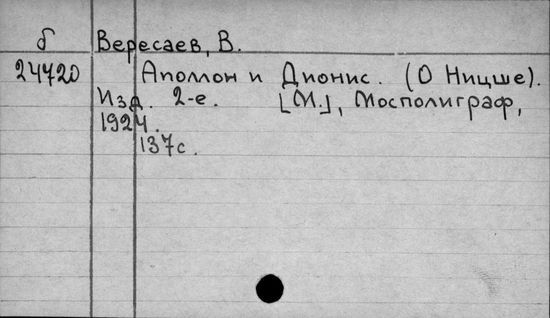 б Вересаев, В.
24720 Аполлон и Дионис. (О Ницше).
Изд. 2-е. [М.], Мосполиграф,
1924.
137с.